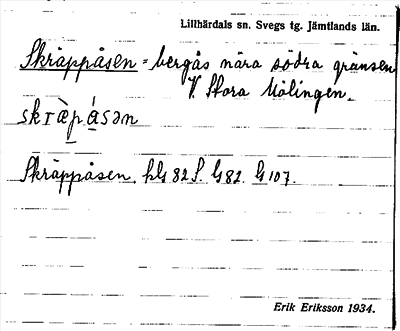 Lillhärdals sn. Svegs tg. Jämtlands län.
Skräppåsen = bergås nära södra gränsen
V. Stora Mölingen.
skræ̀pásən
Skräppåsen. hls 82 S. G 82. G 107.
Erik Eriksson 1934.